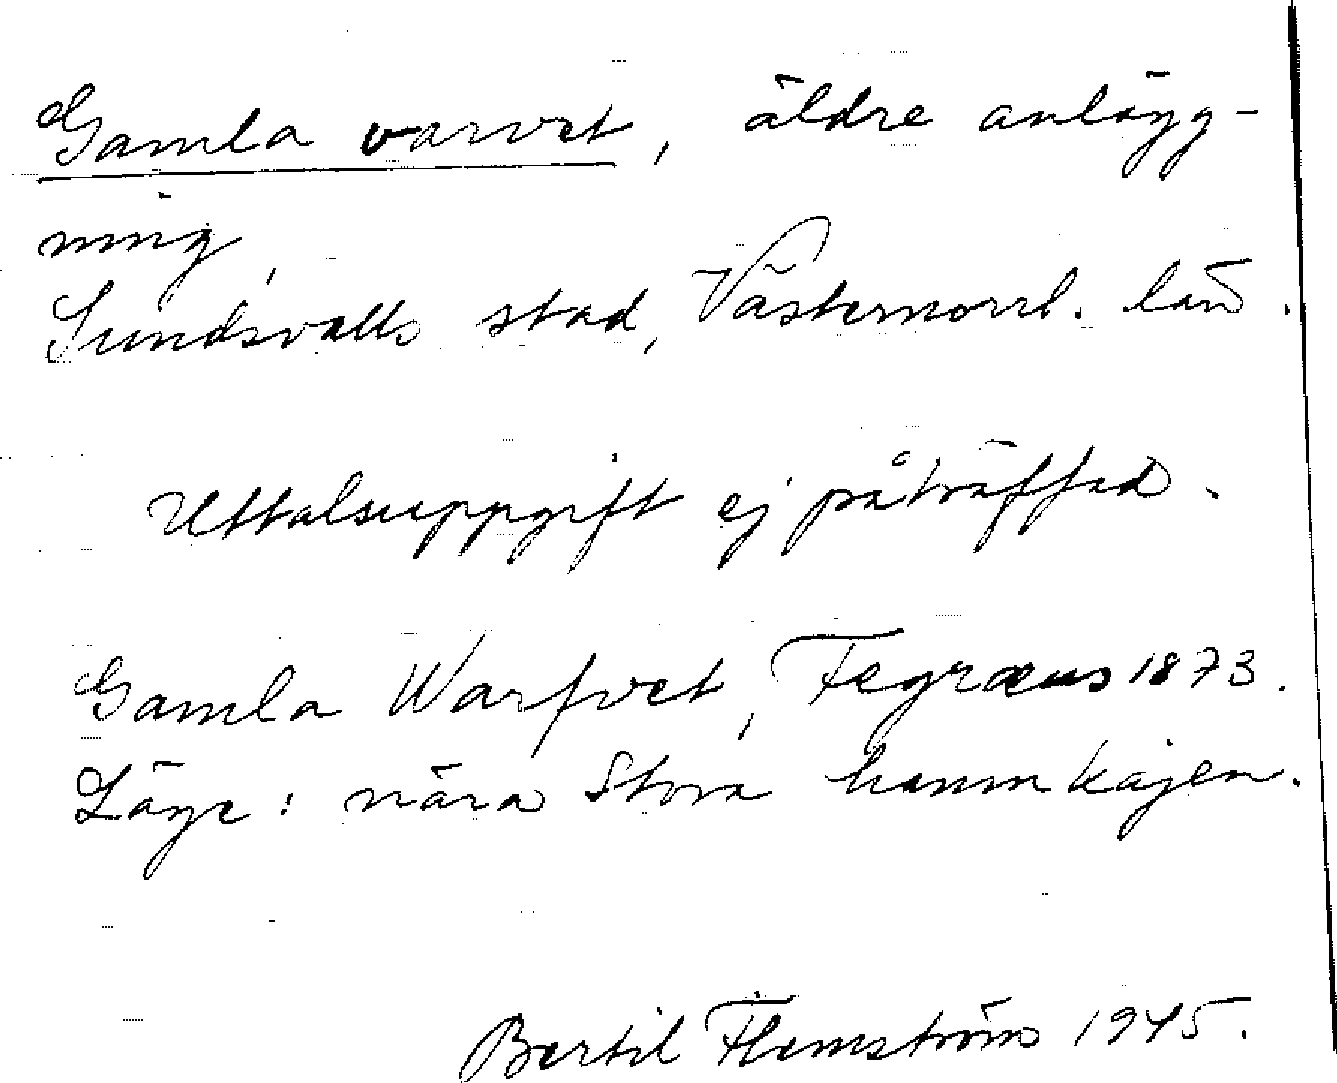 Gamla varvet, äldre anlägg-
ning,
Sundsvalls stad, Västernorrl. län.
Uttalsuppgift ej påträffad.
Gamla Warfvet, Fegræus 1873.
Läge: nära Stora hamnkajen.
Bertil Flemström 1945.